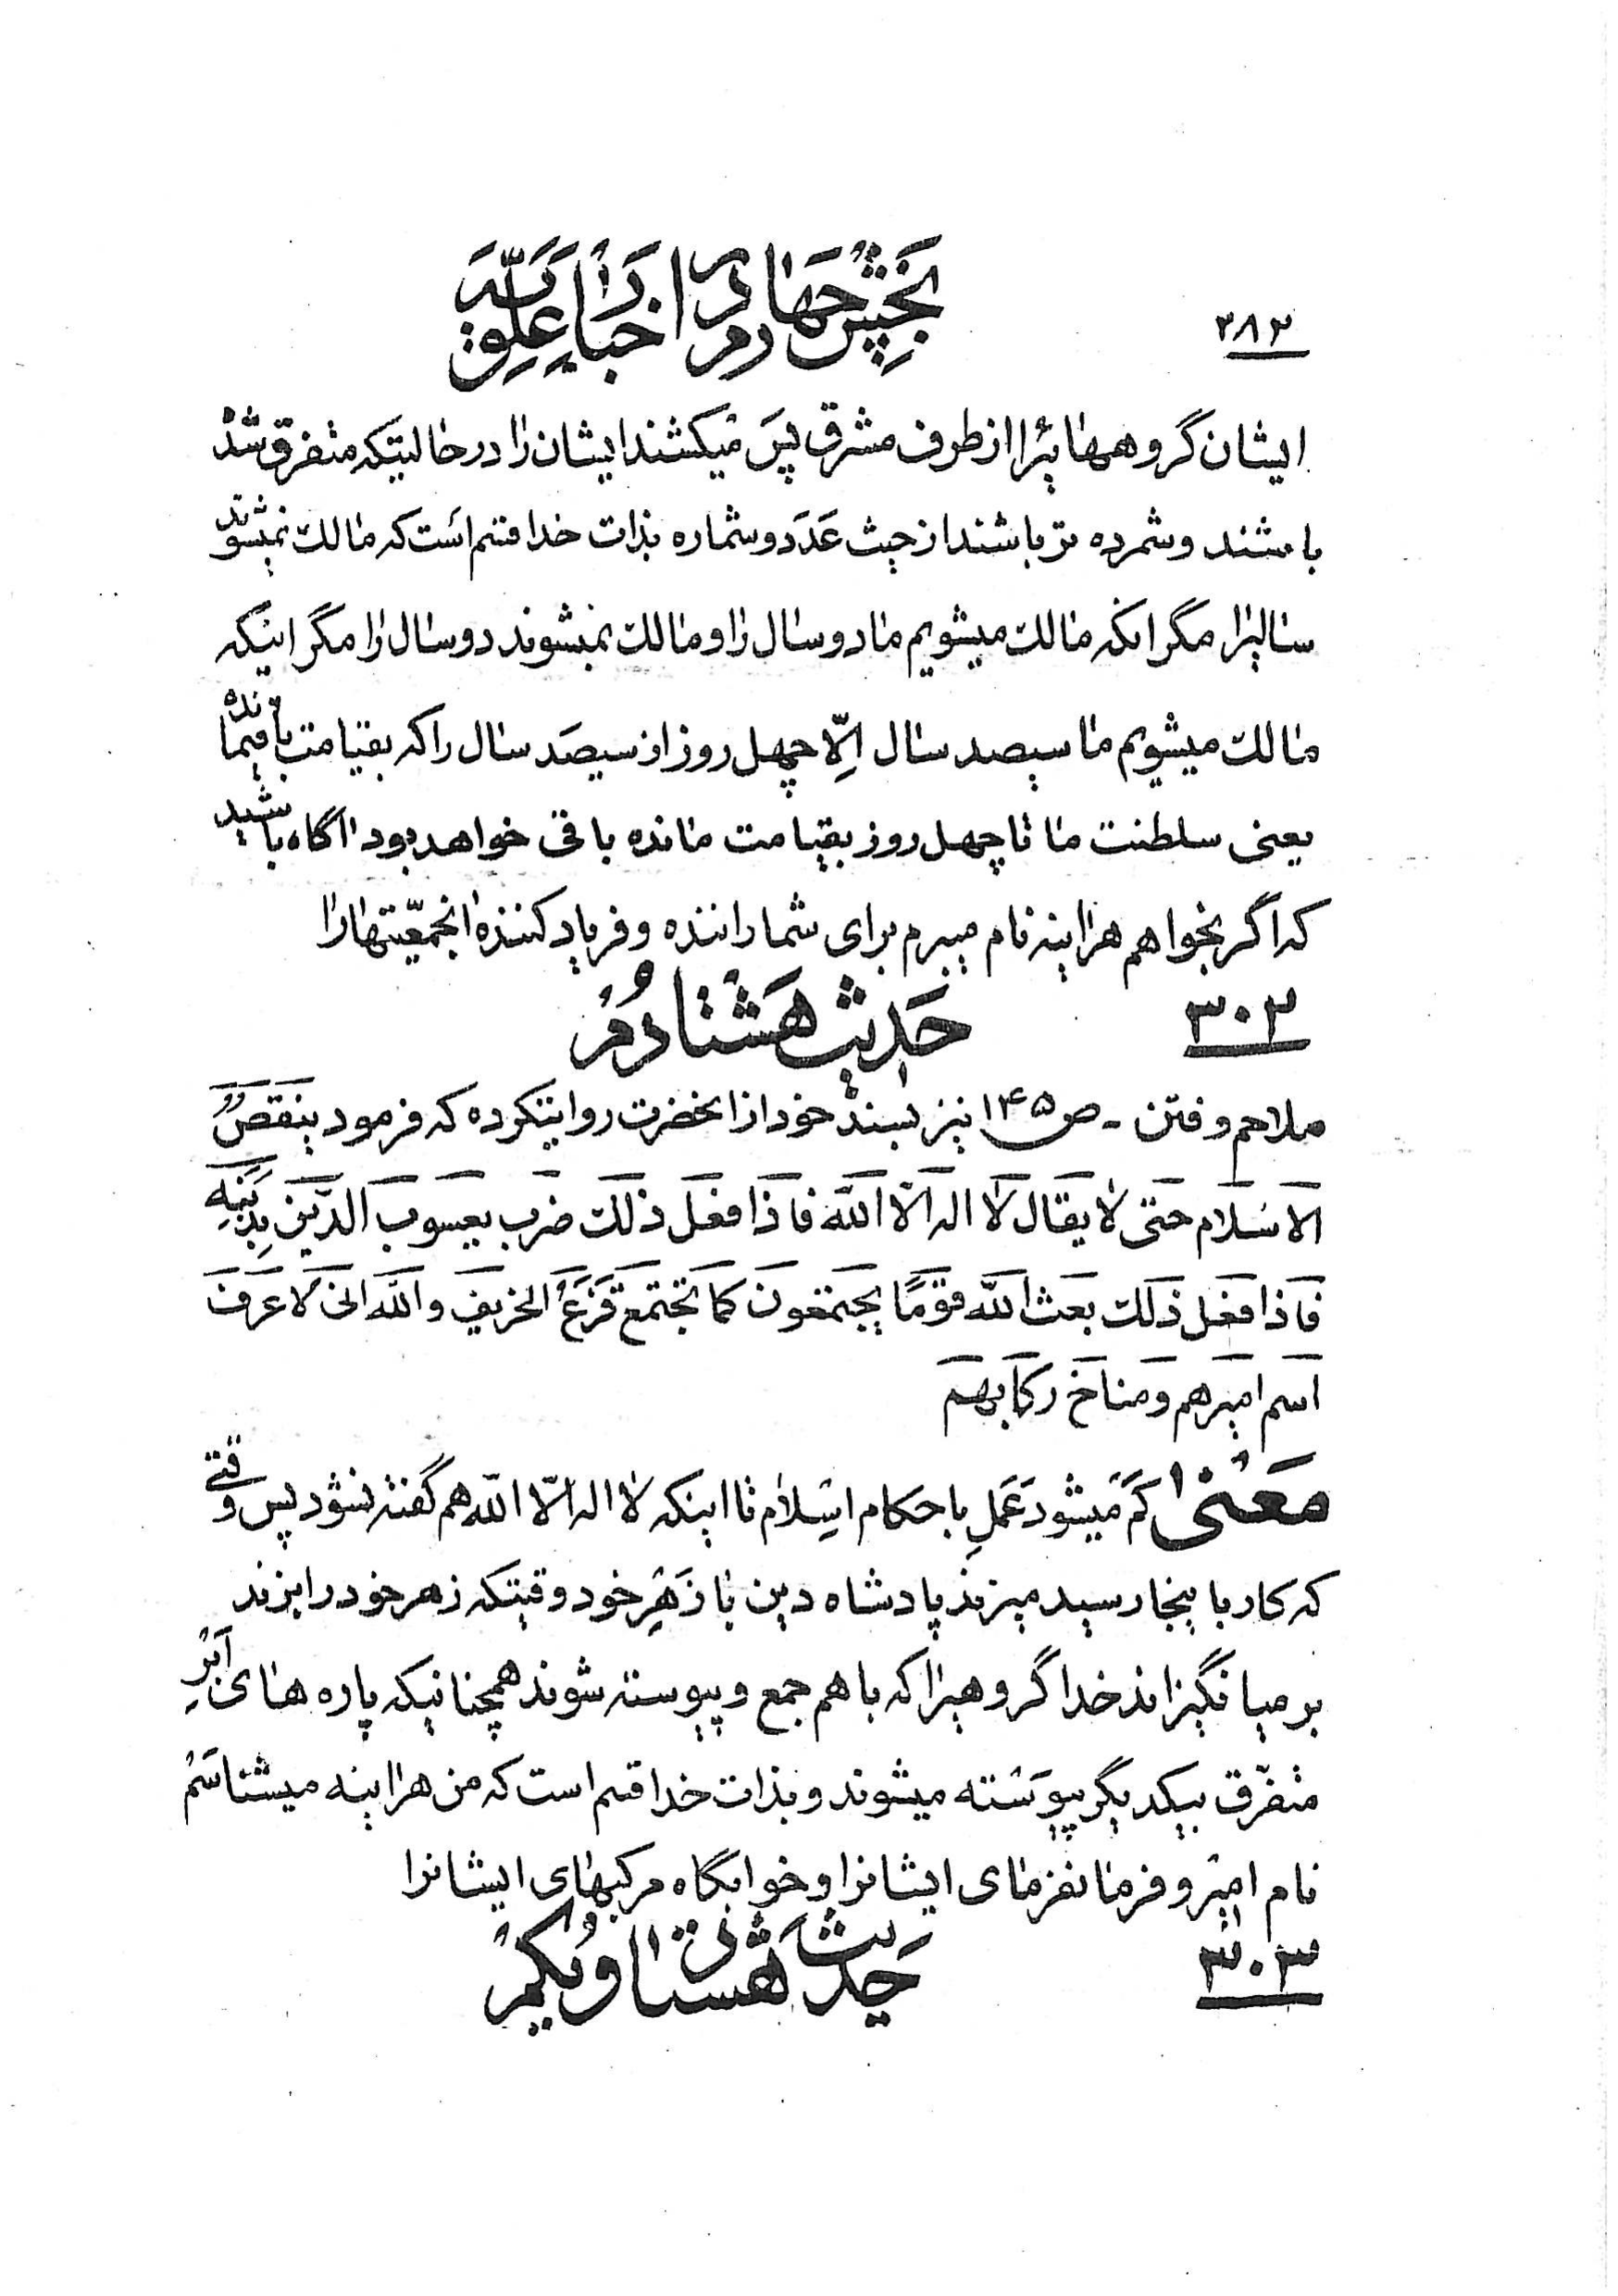 بخش چهارم در اخبار علویه
۳۸۲
ایشان گروههائیرا از طرف مشرق پس میکشند ایشان را در حالیتکه متفرق شده
باشند و شمرده تر باشند از حیث عدد و شماره بذات خدا قسم است که مالک نمیشوند
سالیرا مگر انکه مالک میشویم ما دو سال را و مالک نمیشوند دو سال را مگر اینکه
مالک میشویم ما سیصد سال الّا چهل روز از سیصد سال را که بقیامت باقیمانده
یعنی سلطنت ما تا چهل روز بقیامت مانده باقی خواهد بود اگاه باشید
که اگر بخواهم هراینه نام میبرم برای شما راننده و فریاد کننده انجمعّیتها را
۳۰۲
حدیث هشتادم
ملاحم و فتن - ص ۱۴۵ نیز بسند خود از انحضرت روایتکرده که فرمود ینقص
الاسلام حتی لا یقال لا اله الّا اللّه فاذا فعل ذلک ضرب یعسوب الدّین بذنبه
فاذا فعل ذلک بعث اللّه قومًا یجتمعون کما تجتمع قزع الخریف و اللّه انی لاعرف
اسم امیرهم و مناخ رکابهم
معنی کم میشود عمل باحکام اسلام تا اینکه لا اله الّا اللّه هم گفته نشود پس وقتی
که کار باینجا رسید میزند پادشاه دین با زهر خود وقیتکه زهر خود را بزند
برمیانگیزاند خدا گروهیرا که با هم جمع و پیوسته شوند همچنانیکه پاره های ابر
متفرّق بیکدیگر پیوسته میشوند و بذات خدا قسم است که من هراینه میشناسم
نام امیر و فرمانفرمای ایشانرا و خوابگاه مرکبهای ایشانرا
۳۰۳
حدیث هشتاد و یکم